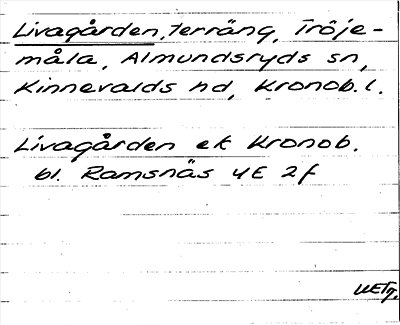 Livagården, terräng, Tröje-
måla, Almundsryds sn,
Kinnevalds hd, Kronob. l.
Livagården ek Kronob.
bl. Ramsnäs 4E 2f